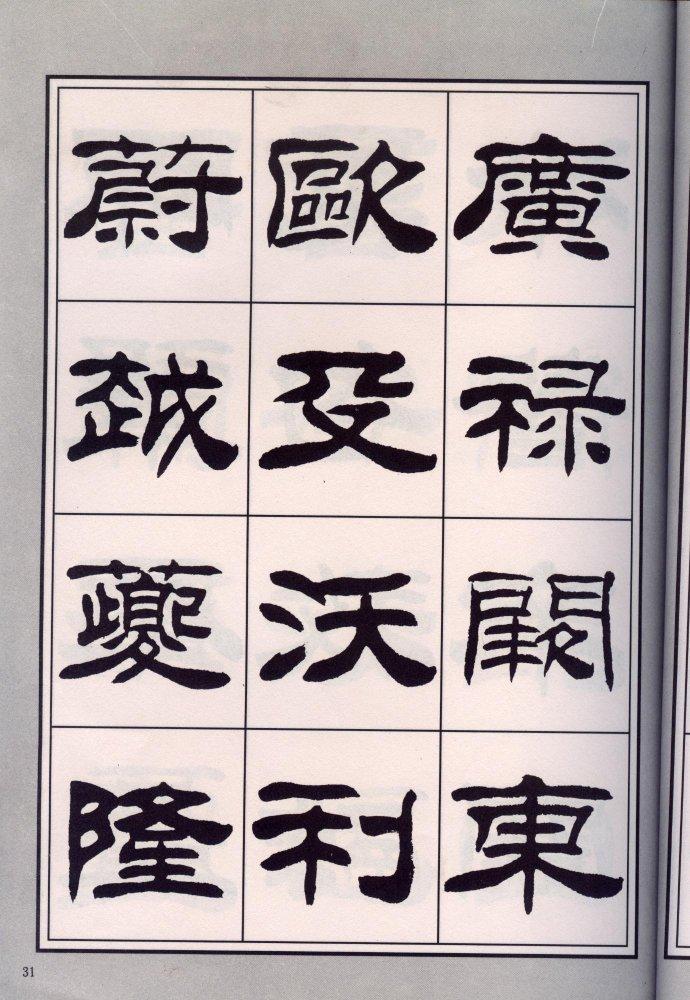 廣禄東
歐及沃利
蔚越蘷隆
31